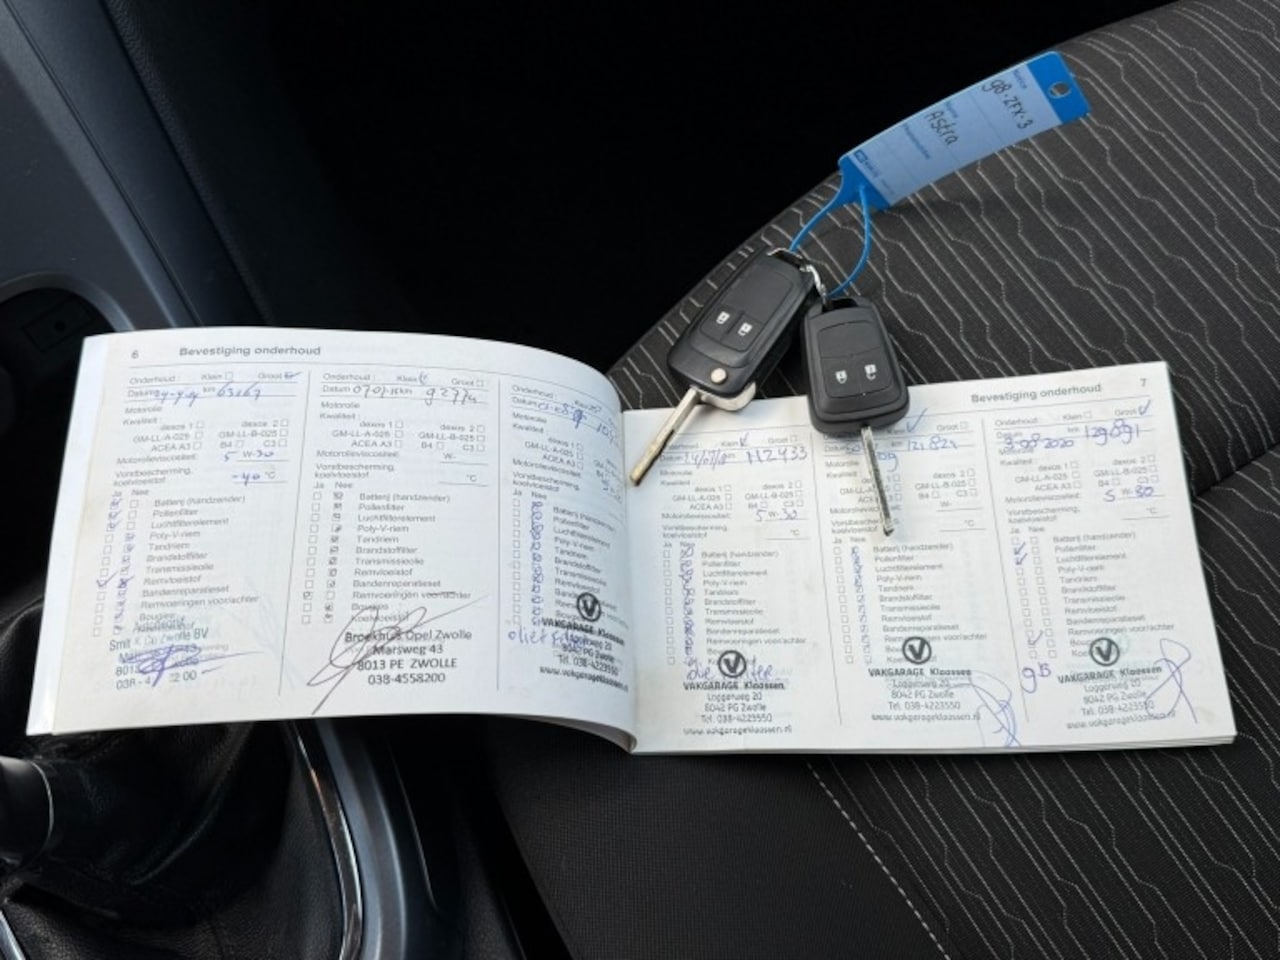 Astra
6 Bevestiging onderhoud
Onderhoud : Klein Groot
Datum km 63167
Motorolie
Kwaliteit :
dexos 1 dexos 2
GM-LL-A-025 GM-LL-B-025
ACEA A3 B4 C3
Motorolieviscositeit: 5 W-30
Vorstbescherming,
koelvloeistof -40 °C
Ja Nee
Batterij (handzender)
Pollenfilter
Luchtfilterelement
Poly-V-riem
Tandriem
Brandstoffilter
Transmissieolie
Remvloeistof
Bandenreparatieset
Remvoeringen voor/achter
Bougies
Onderhoud : Klein Groot
Datum km
Motorolie
Kwaliteit :
dexos 1 dexos 2
GM-LL-A-025 GM-LL-B-025
ACEA A3 B4 C3
Motorolieviscositeit: W-
Vorstbescherming,
koelvloeistof °C
Ja Nee
Batterij (handzender)
Pollenfilter
Luchtfilterelement
Poly-V-riem
Tandriem
Brandstoffilter
Transmissieolie
Remvloeistof
Bandenreparatieset
Remvoeringen voor/achter
Bougies
Koelvloeistof
Broekhuis Opel Zwolle
Marsweg 43
8013 PE ZWOLLE
038-4558200
Onderhoud :
Datum
Motorolie
Kwaliteit :
dexos 1
GM-LL-A-025
ACEA A3
Motorolieviscositeit:
Vorstbescherming,
koelvloeistof
Ja Nee
Batterij (handzender)
Pollenfilter
Luchtfilterelement
Poly-V-riem
Tandriem
Brandstoffilter
Transmissieolie
Remvloeistof
VAKGARAGE Klaassen
8042 PG Zwolle
Tel. 038-4223550
www.vakgarageklaassen.nl
Bevestiging onderhoud 7
Klein Groot
km 112433
Motorolie
Kwaliteit :
dexos 1 dexos 2
GM-LL-A-025 GM-LL-B-025
ACEA A3 B4 C3
Motorolieviscositeit: 5 W-30
Vorstbescherming,
koelvloeistof °C
Ja Nee
Batterij (handzender)
Pollenfilter
Luchtfilterelement
Poly-V-riem
Tandriem
Brandstoffilter
Transmissieolie
Remvloeistof
Bandenreparatieset
Remvoeringen voor/achter
VAKGARAGE Klaassen
Loggerweg 20
8042 PG Zwolle
Tel. 038-4223550
www.vakgarageklaassen.nl
Groot
Motorolie
dexos 2
GM-LL-B-025
C3
W-
°C
Ja Nee
Batterij (handzender)
Pollenfilter
Luchtfilterelement
Poly-V-riem
Tandriem
Brandstoffilter
Transmissieolie
Remvloeistof
Bandenreparatieset
Remvoeringen voor/achter
VAKGARAGE Klaassen
Loggerweg 20
8042 PG Zwolle
Tel. 038-4223550
www.vakgarageklaassen.nl
Onderhoud : Klein Groot
2020 km 129891
Motorolie
Kwaliteit :
dexos 1 dexos 2
GM-LL-A-025 GM-LL-B-025
ACEA A3 B4 C3
Motorolieviscositeit: 5 W-30
Vorstbescherming,
koelvloeistof °C
Ja Nee
Batterij (handzender)
Pollenfilter
Luchtfilterelement
Poly-V-riem
Tandriem
Brandstoffilter
Transmissieolie
Remvloeistof
Bandenreparatieset
Remvoeringen voor/achter
VAKGARAGE Klaassen
Loggerweg 20
8042 PG Zwolle
Tel. 038-4223550
www.vakgarageklaassen.nl